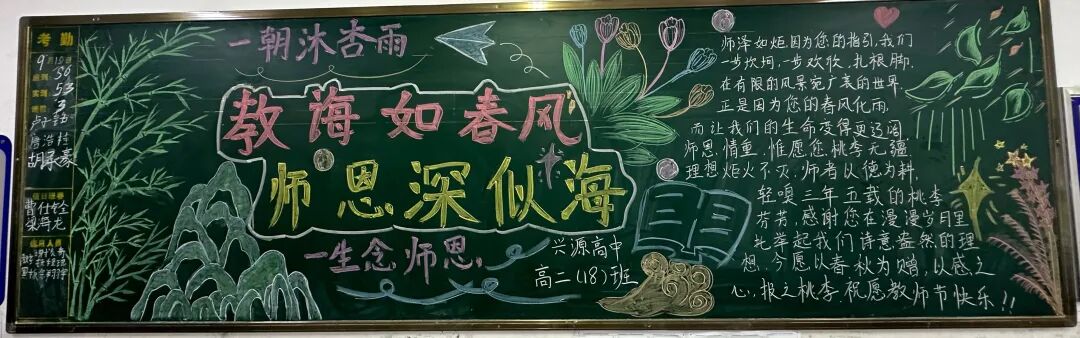 考勤
9月10日
应到 56
实到 53
迟到 3
一朝沐杏雨
教诲如春风
师恩深似海
一生念师恩
兴源高中
高二(18)班
师泽如炬因为您的指引,我们
一步坎坷,一步欢欣,扎根脚,
在有限的风景宛广袤的世界.
正是因为您的春风化雨.
而让我们的生命变得更辽阔
师恩情重,惟愿您桃李无疆
理想炬火不灭,师者以德为耕,
轻嗅三年五载的桃李
芬芳,感谢您在漫漫岁月里
托举起我们诗意盎然的理
想,今愿以春秋为赠,以感之
心,报之桃李祝愿教师节快乐!!